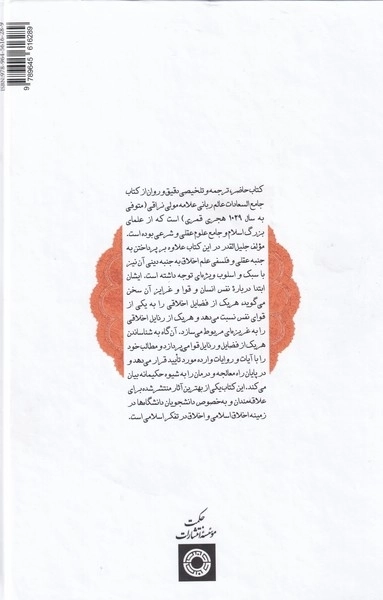 ISBN:978-964-5616-28-9
9 789645 616289
کتاب حاضر، ترجمه و تلخیصی دقیق و روان از کتاب
جامع السعادات عالم ربانی علامه مولی نراقی (متوفی
به سال ۱۰۲۹ هجری قمری) است که از علمای
بزرگ اسلام و جامع علوم عقلی و شرعی بوده است.
مؤلف جلیل‌القدر در این کتاب علاوه بر پرداختن به
جنبه عقلی و فلسفی علم اخلاق به جنبه دینی آن نیز
با سبک و اسلوب ویژه‌ای توجه داشته است. ایشان
ابتدا دربارهٔ نفس انسان و قوا و غرایز آن سخن
می‌گوید، هر یک از فضایل اخلاقی را به یکی از
قوای نفس نسبت می‌دهد و هر یک از رذایل اخلاقی
را به غریزه‌ای مربوط می‌سازد. آن‌گاه به شناساندن
هر یک از فضایل و رذایل قوا می‌پردازد و مطالب خود
را با آیات و روایات وارده مورد تأیید قرار می‌دهد و
در پایان راه معالجه و درمان را به شیوه حکیمانه بیان
می‌کند. این کتاب یکی از بهترین آثار منتشر شده برای
علاقه‌مندان و به‌خصوص دانشجویان دانشگاه‌ها در
زمینه اخلاق اسلامی و اخلاق در تفکر اسلامی است.
حکمت
مؤسسه انتشارات